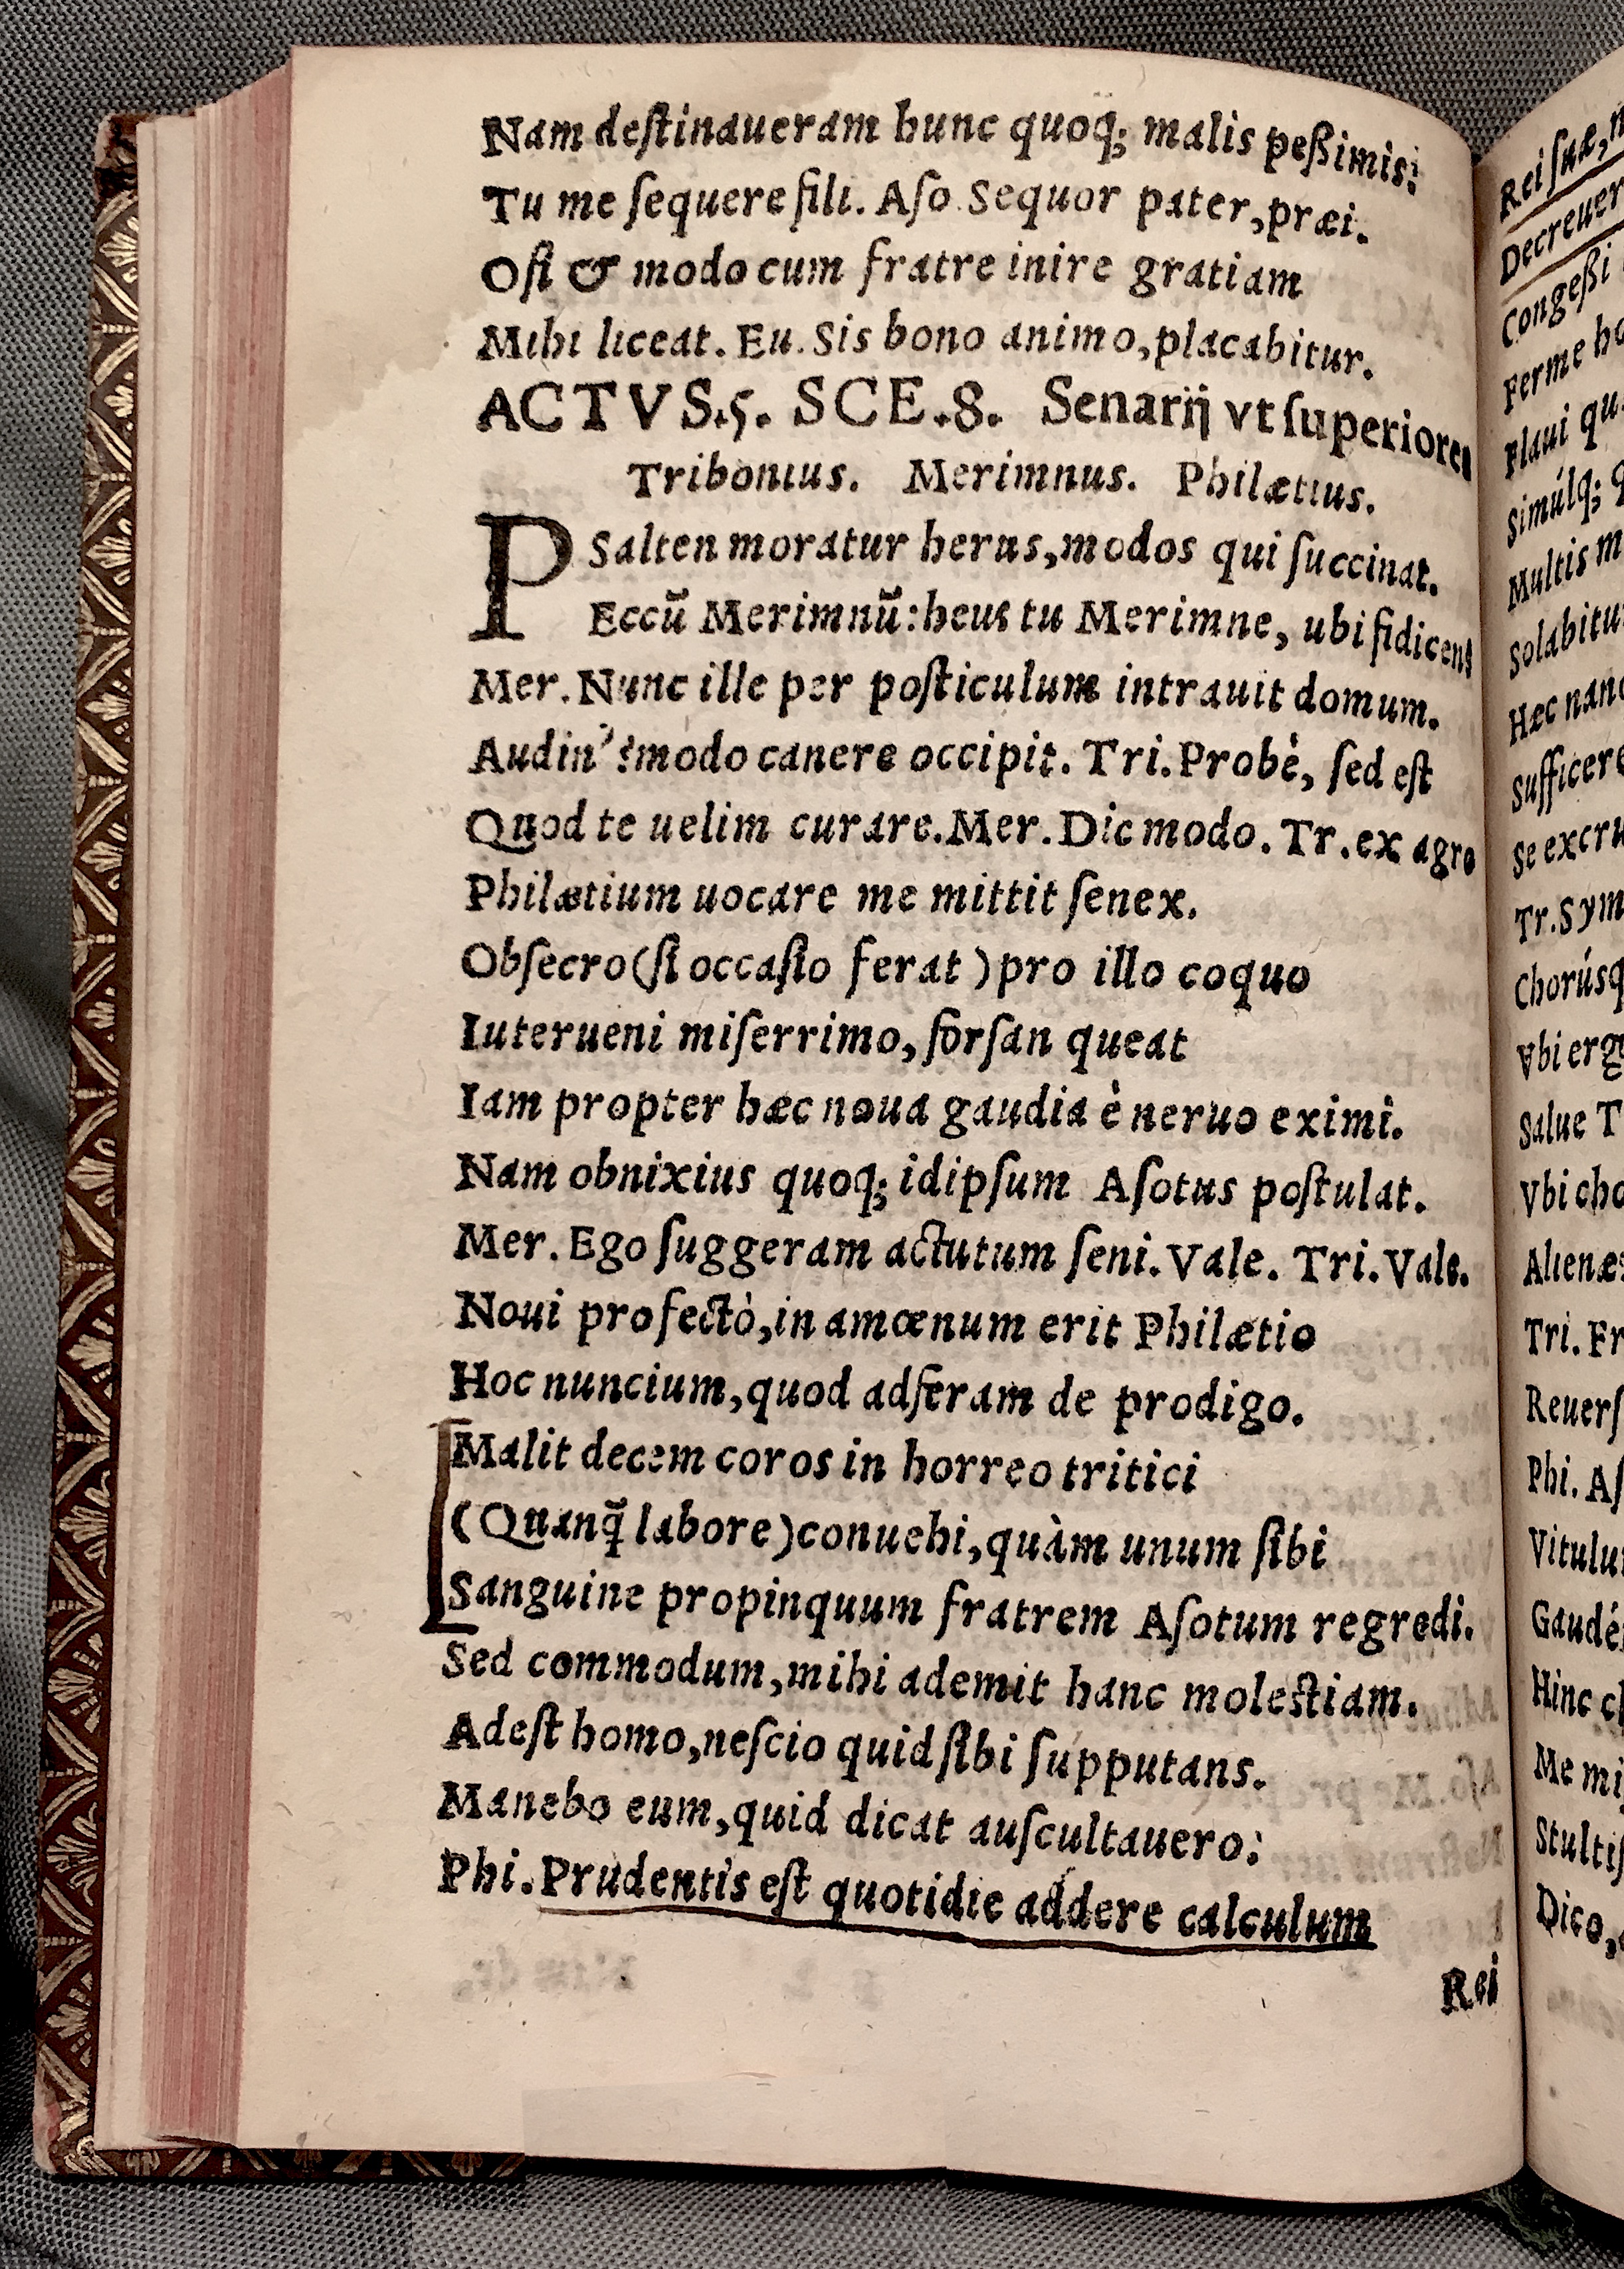 Nam deſtinaueram hunc quoq; malis peßimis:
Tu me ſequere fili. Aſo. Sequor pater, præi.
O ſi & modo cum fratre inire gratiam
Mihi liceat. Eu. Sis bono animo, placabitur.
ACTVS.5. SCE.8. Senarij vt ſuperiores
Tribonius. Merimnus. Philætius.
PSalten moratur herus, modos qui ſuccinat.
Eccū Merimnū: heus tu Merimne, ubi fidicens
Mer. Nunc ille per poſticulum intrauit domum.
Audin'? modo canere occipit. Tri. Probè, ſed eſt
Quod te uelim curare. Mer. Dic modo. Tr. ex agro
Philætium uocare me mittit ſenex.
Obſecro (ſi occaſio ferat) pro illo coquo
Iuterueni miſerrimo, forſan queat
Iam propter hæc noua gaudia è neruo eximi.
Nam obnixius quoq; idipſum Aſotus poſtulat.
Mer. Ego ſuggeram actutum ſeni. Vale. Tri. Vale.
Noui profectò, in amœnum erit Philætio
Hoc nuncium, quod adferam de prodigo.
Malit decem coros in horreo tritici
(Quanq̃ labore) conuehi, quàm unum ſibi
Sanguine propinquum fratrem Aſotum regredi.
Sed commodum, mihi ademit hanc moleſtiam.
Adeſt homo, neſcio quid ſibi ſupputans.
Manebo eum, quid dicat auſcultauero:
Phi. Prudentis eſt quotidie addere calculum
Rei
Rei ſuæ,
Decreuer
Congeßi
Ferme ho
Flaui qu
Simúlq; q
Multis m
Solabitu
Hæc nanq
Sufficere
Se excru
Tr. Sym
Chorúsq
Vbi erg
Salue T
Vbi cho
Alienæ
Tri. Fr
Reuerſ
Phi. Aſ
Vitulu
Gaudé
Hinc c
Me mi
Stultiſ
Dico,